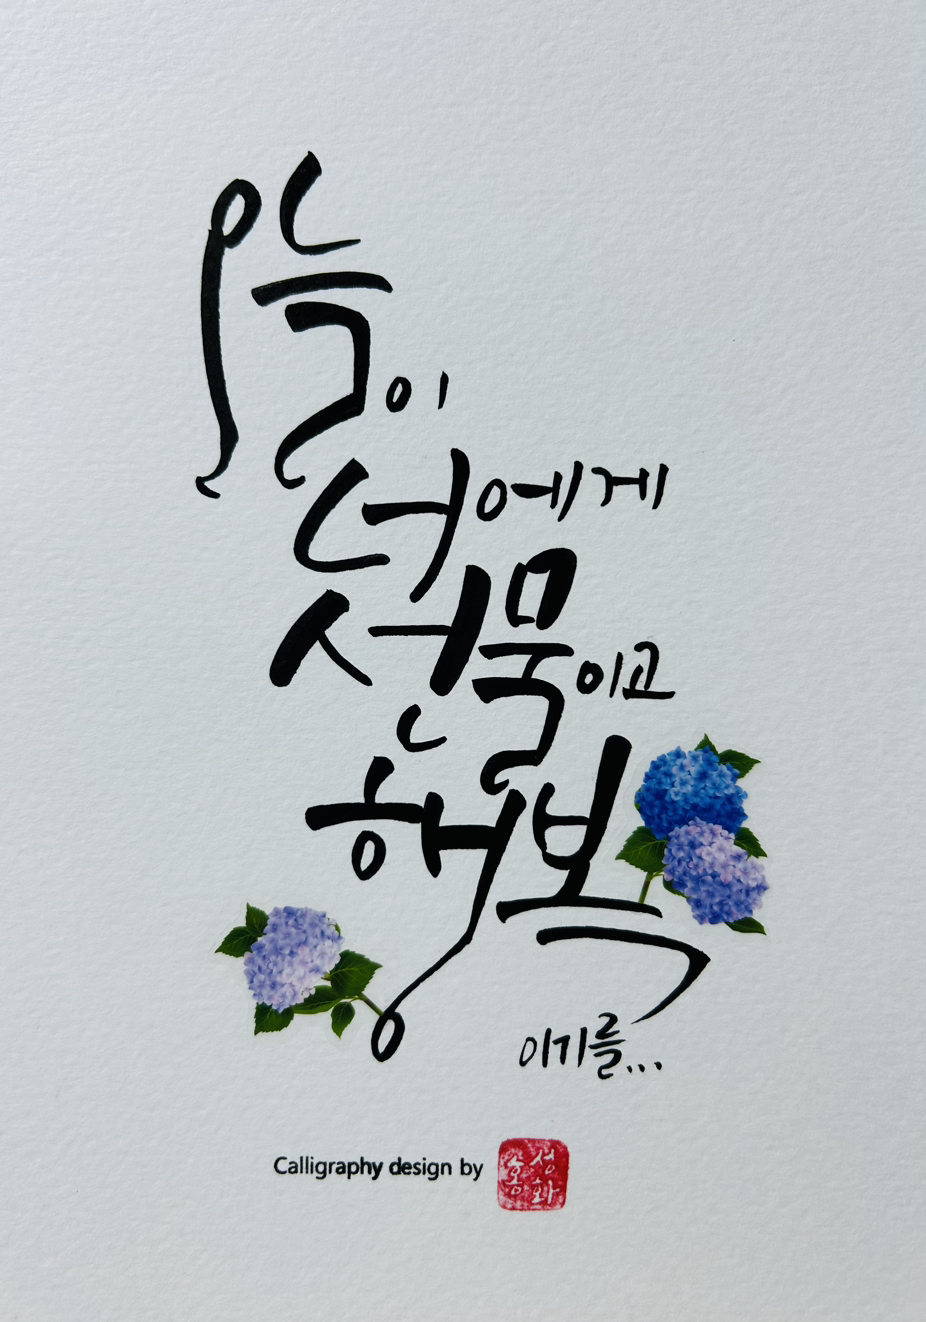 오늘이
너에게
선물이고
행복
이기를...
Calligraphy design by
홍성화